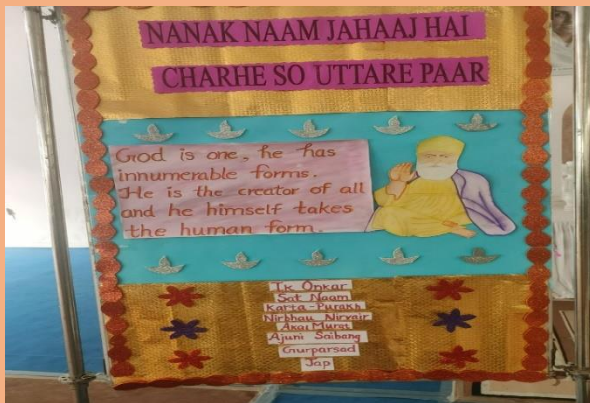 NANAK NAAM JAHAAJ HAI
CHARHE SO UTTARE PAAR
God is one, he has
innumerable forms.
He is the creator of all
and he himself takes
the human form.
Ik Onkar
Sat Naam
Karta-Purakh
Nirbhau Nirvair
Akal Murat
Ajuni Saibang
Gurparsad
Jap